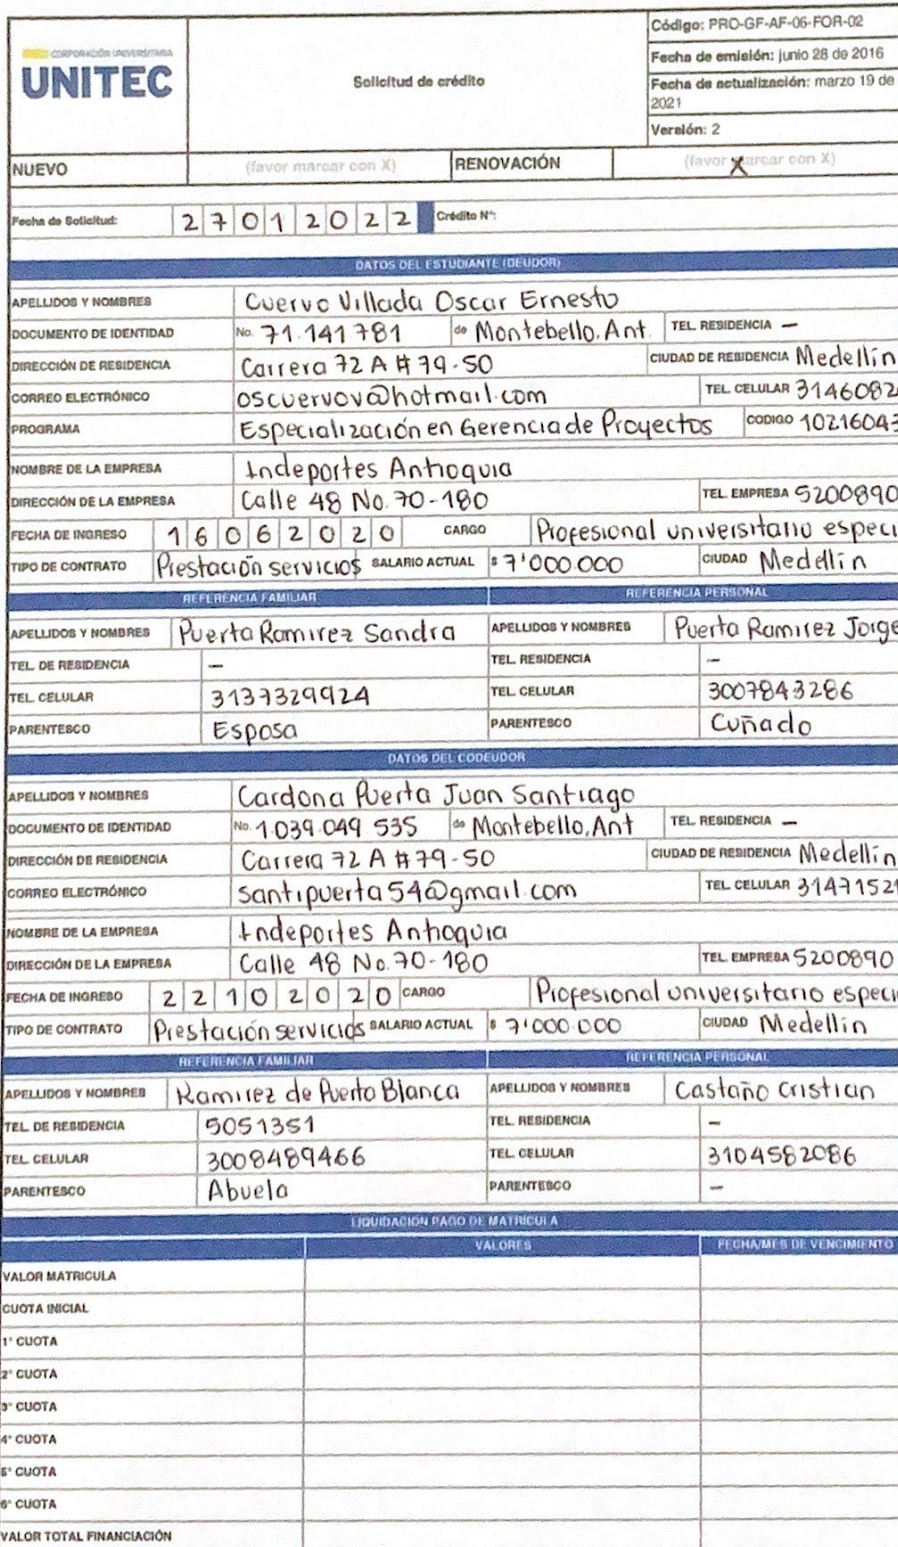 Código: PRO-GF-AF-06-FOR-02
CORPORACIÓN UNIVERSITARIA
UNITEC
Solicitud de crédito
Fecha de emisión: junio 28 de 2016
Fecha de actualización: marzo 19 de
2021
Versión: 2
NUEVO (favor marcar con X) RENOVACIÓN (favor marcar con X) X
Fecha de Solicitud: 27012022 Crédito N°:
DATOS DEL ESTUDIANTE (DEUDOR)
APELLIDOS Y NOMBRES Cuervo Villada Oscar Ernesto
DOCUMENTO DE IDENTIDAD No. 71.141781 de Montebello, Ant. TEL. RESIDENCIA —
DIRECCIÓN DE RESIDENCIA Carrera 72 A # 79-50 CIUDAD DE RESIDENCIA Medellín
CORREO ELECTRÓNICO oscuervov@hotmail.com TEL. CELULAR 3146082
PROGRAMA Especialización en Gerencia de Proyectos CODIGO 1021604
NOMBRE DE LA EMPRESA Indeportes Antioquia
DIRECCIÓN DE LA EMPRESA Calle 48 No. 70-180 TEL. EMPRESA 5200890
FECHA DE INGRESO 16062020 CARGO Profesional universitario especi
TIPO DE CONTRATO Prestación servicios SALARIO ACTUAL $ 7'000.000 CIUDAD Medellín
REFERENCIA FAMILIAR REFERENCIA PERSONAL
APELLIDOS Y NOMBRES Puerta Ramirez Sandra APELLIDOS Y NOMBRES Puerta Ramirez Jorge
TEL. DE RESIDENCIA — TEL. RESIDENCIA —
TEL. CELULAR 3137329924 TEL. CELULAR 3007843286
PARENTESCO Esposa PARENTESCO Cuñado
DATOS DEL CODEUDOR
APELLIDOS Y NOMBRES Cardona Puerta Juan Santiago
DOCUMENTO DE IDENTIDAD No. 1.039.049.535 de Montebello, Ant TEL. RESIDENCIA —
DIRECCIÓN DE RESIDENCIA Carrera 72 A # 79-50 CIUDAD DE RESIDENCIA Medellín
CORREO ELECTRÓNICO santipuerta54@gmail.com TEL. CELULAR 3147152
NOMBRE DE LA EMPRESA Indeportes Antioquia
DIRECCIÓN DE LA EMPRESA Calle 48 No. 70-180 TEL. EMPRESA 5200890
FECHA DE INGRESO 22102020 CARGO Profesional universitario especi
TIPO DE CONTRATO Prestación servicios SALARIO ACTUAL $ 7'000.000 CIUDAD Medellín
REFERENCIA FAMILIAR REFERENCIA PERSONAL
APELLIDOS Y NOMBRES Ramirez de Puerto Blanca APELLIDOS Y NOMBRES Castaño Cristian
TEL. DE RESIDENCIA 5051351 TEL. RESIDENCIA —
TEL. CELULAR 3008489466 TEL. CELULAR 3104582086
PARENTESCO Abuela PARENTESCO —
LIQUIDACIÓN PAGO DE MATRÍCULA
VALORES FECHA/MES DE VENCIMIENTO
VALOR MATRICULA
CUOTA INICIAL
1° CUOTA
2° CUOTA
3° CUOTA
4° CUOTA
5° CUOTA
6° CUOTA
VALOR TOTAL FINANCIACIÓN